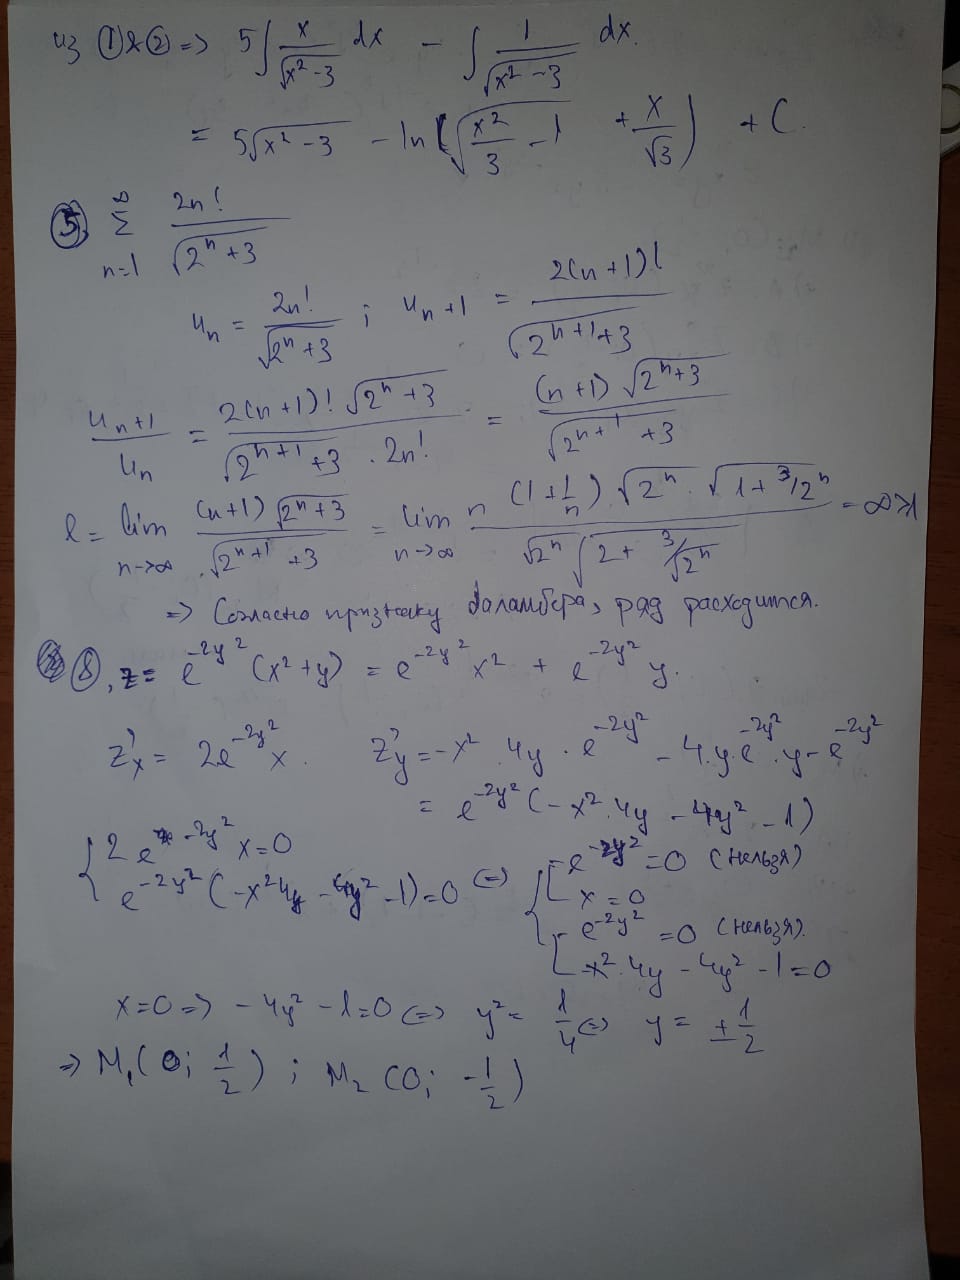 из ① & ② => 5∫ x/√(x²-3) dx - ∫ 1/√(x²-3) dx.
= 5√(x²-3) - ln(√(x²/3 - 1) + x/√3) + C.
⑤. ∞ Σ n=1 2n!/√(2ⁿ+3)
uₙ = 2n!/√(2ⁿ+3) ; uₙ₊₁ = 2(n+1)!/√(2ⁿ⁺¹+3)
uₙ₊₁/uₙ = 2(n+1)! √(2ⁿ+3) / √(2ⁿ⁺¹+3) . 2n! = (n+1) √(2ⁿ+3) / √(2ⁿ⁺¹+3)
l = lim n->∞ (n+1) √(2ⁿ+3) / √(2ⁿ⁺¹+3) = lim n->∞ n (1+1/n) √2ⁿ . √(1+3/2ⁿ) / √2ⁿ √(2+3/√2ⁿ) = ∞>1
=> Согласно признаку Даламбера, ряд расходится.
⑧, z = e^(-2y²) (x²+y) = e^(-2y²) x² + e^(-2y²) y.
z'x = 2e^(-2y²) x. z'y = -x² 4y . e^(-2y²) - 4.y.e^(-2y²) . y - e^(-2y²)
= e^(-2y²) (-x². 4y - 4y² - 1)
{ 2 e^(-2y²) x = 0
e^(-2y²) (-x² 4y - 4y² - 1) = 0 <=> { [ e^(-2y²) = 0 (нельзя)
x = 0
[ e^(-2y²) = 0 (нельзя).
-x². 4y - 4y² - 1 = 0
x=0 => -4y² - 1 = 0 <=> y² = 1/4 <=> y = ±1/2
=> M₁(0; 1/2) ; M₂ (0; -1/2)